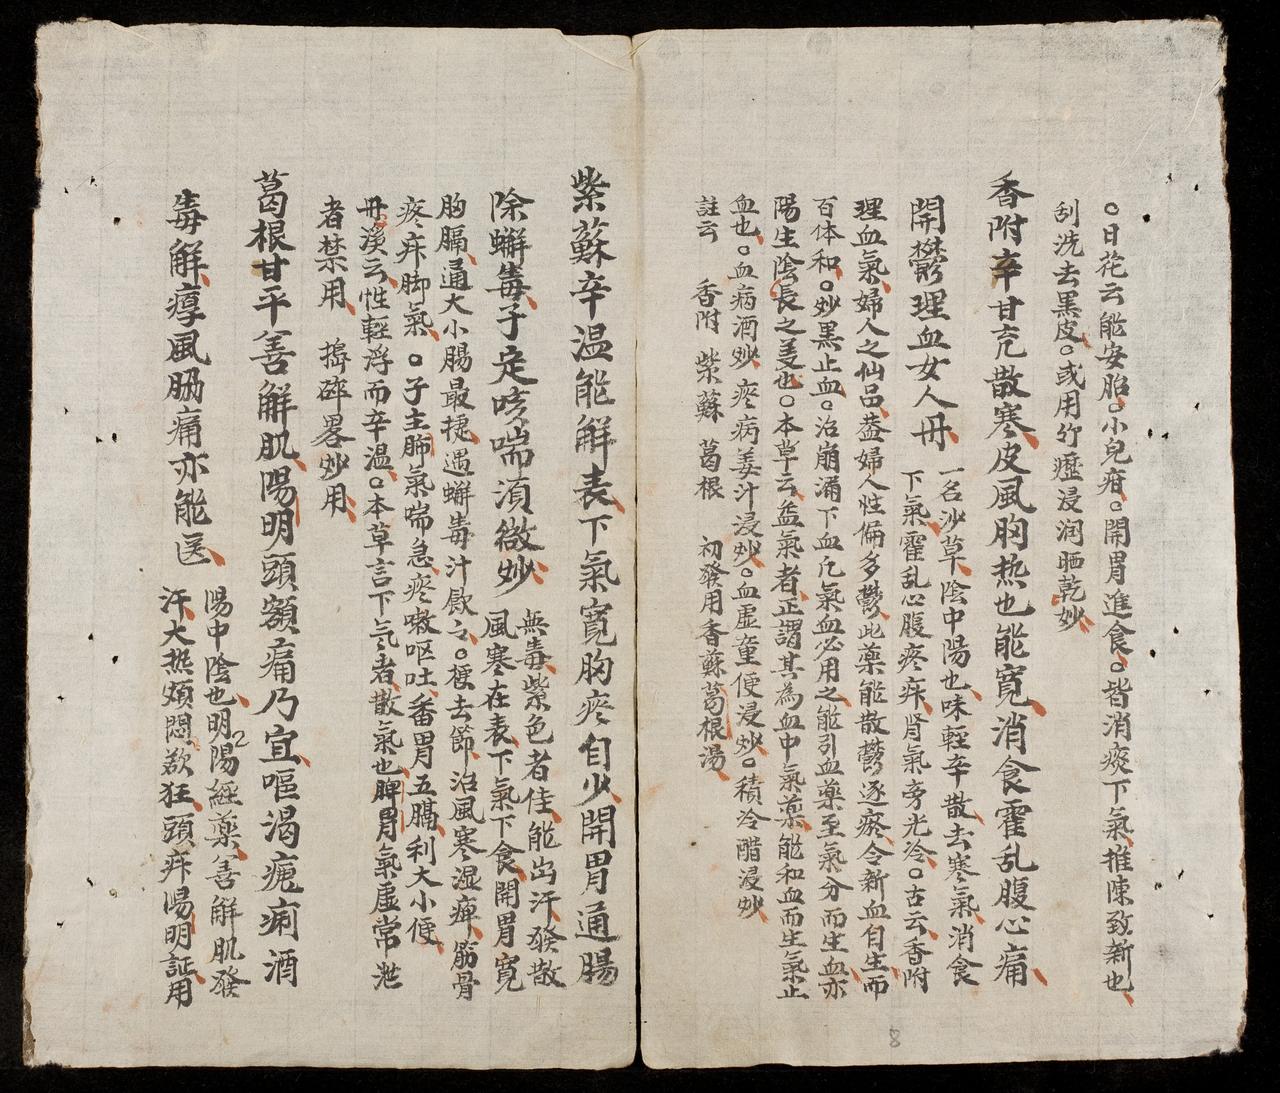 ○日花云能安胎○小兒疳○開胃進食○皆消痰下氣推陳致新也
刮洗去黑皮○或用竹瀝浸润晒乾炒
香附辛甘充散寒皮風胸热也能寬消食霍乱腹心痛
開欝理血女人丹
一名沙草陰中陽也味輕辛散去寒氣消食
下氣霍乱心腹疼疾肾氣旁光冷○古云香附
理血氣婦人之仙品盖婦人性偏多鬱此薬能散鬱逐瘀令新血自生而
百体和○炒黒止血○治崩漏下血凢氣血必用之能引血藥至氣分而生血亦
陽生陰長之㫖也○本草云益氣者正謂其為血中氣薬能和血而生氣止
血也○血病酒炒疼病姜汁浸炒○血虛童便浸炒○積冷醋浸炒
註云 香附 紫蘇 葛根 初發用香蘇葛根湯
紫蘇辛温能解表下氣寬胸疼自少開胃通腸
除蠏毒子定咳喘湏微炒
無毒紫色者佳能出汗發散
風寒在表下氣下食開胃寬
胸膈通大小腸最捷遇蠏毒汁飲之○梗去節治風寒湿痺筋骨
疼疾脚氣○子主肺氣喘急疼嗽呕吐番胃五膈利大小便
丹溪云性輕浮而辛温○本草言下氣者散氣也脾胃氣虛常泄
者禁用 擣碎畧炒用
葛根甘平善解肌陽明頭額痛乃宜嘔渴瘧痢酒
毒解㾤風脇痛亦能医
陽中陰也明陽經藥善解肌發
汗大热煩悶欲狂頭疾陽明証用
8